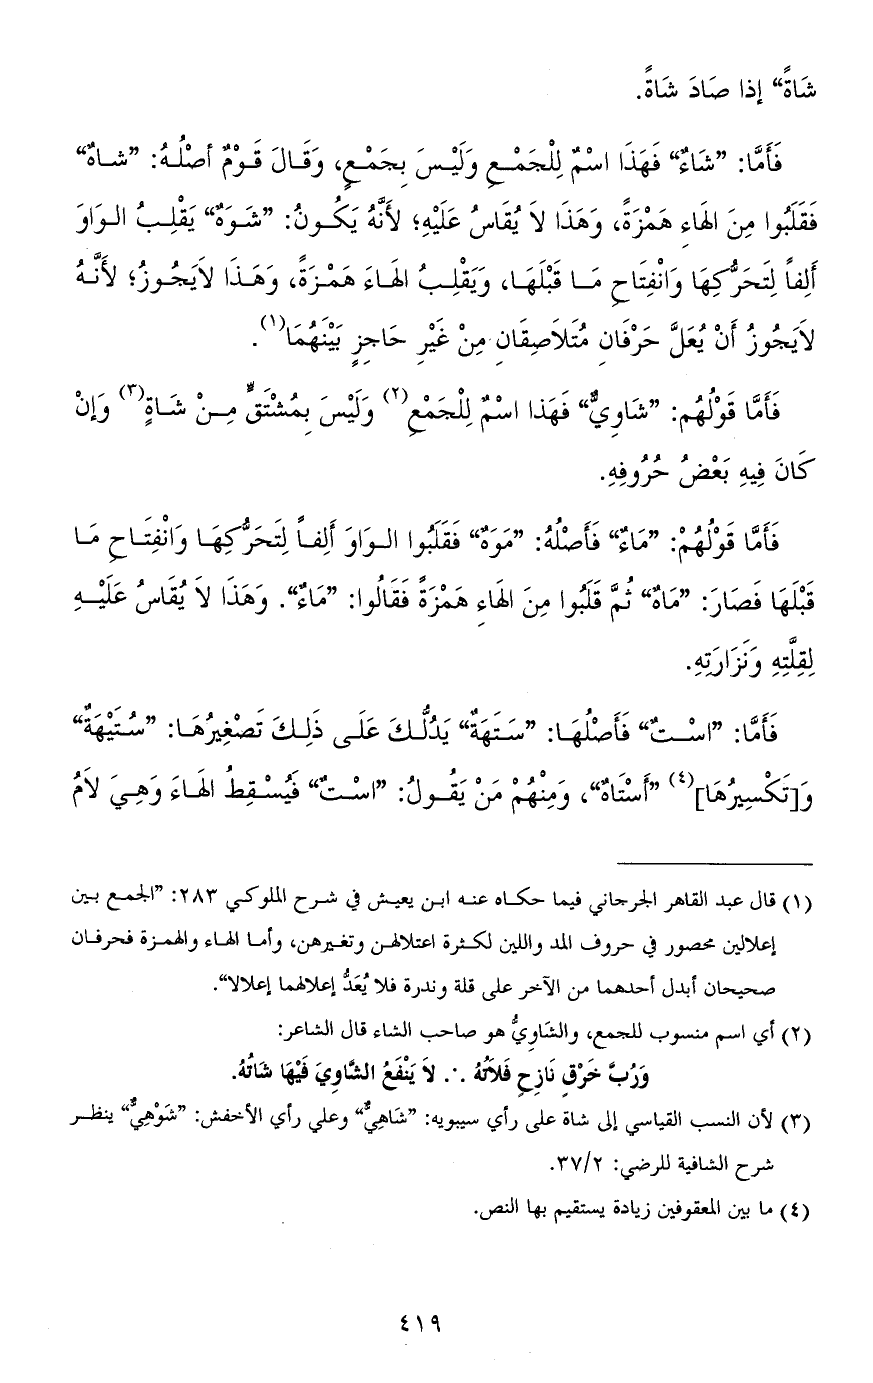 شَاةً“ إذا صَادَ شَاةً.
فَأَمَّا: ”شَاءٌ“ فَهَذَا اسْمٌ لِلْجَمْعِ وَلَيْسَ بِجَمْعٍ، وَقَالَ قَوْمٌ أصْلُهُ: ”شاهٌ“
فَقَلَبُوا مِنَ الهَاءِ هَمْزَةً، وَهَذَا لاَ يُقَاسُ عَلَيْهِ؛ لأَنَّهُ يَكُونُ: ”شَوَهٌ“ يَقْلِبُ الوَاوَ
أَلِفاً لِتَحَرُّكِهَا وَانْفِتَاحِ مَا قَبْلَهَا، وَيَقْلِبُ الهَاءَ هَمْزَةً، وَهَذَا لاَيَجُوزُ؛ لأَنَّهُ
لاَيَجُوزُ أَنْ يُعَلَّ حَرْفَانِ مُتَلاَصِقَانِ مِنْ غَيْرِ حَاجِزٍ بَيْنَهُمَا(١).
فَأَمَّا قَوْلُهُم: ”شَاوِيٌّ“ فَهَذا اسْمٌ لِلْجَمْعِ(٢) وَلَيْسَ بِمُشْتَقٍّ مِنْ شَاةٍ(٣) وَإنْ
كَانَ فِيهِ بَعْضُ حُرُوفِهِ.
فَأَمَّا قَوْلُهُمْ: ”مَاءٌ“ فَأَصْلُهُ: ”مَوَهٌ“ فَقَلَبُوا الوَاوَ أَلِفاً لِتَحَرُّكِهَا وَانْفِتَاحِ مَا
قَبْلَهَا فَصَارَ: ”مَاهٌ“ ثُمَّ قَلَبُوا مِنَ الهَاءِ هَمْزَةً فَقَالُوا: ”مَاءٌ“. وَهَذَا لاَ يُقَاسُ عَلَيْهِ
لِقِلَّتِهِ وَنَزَارَتِهِ.
فَأَمَّا: ”اسْتٌ“ فَأَصْلُهَا: ”سَتَهَةٌ“ يَدُلُّكَ عَلَى ذَلِكَ تَصْغِيرُهَا: ”سُتَيْهَةٌ“
وَ[تَكْسِيرُهَا](٤) ”أَسْتَاهٌ“، وَمِنْهُمْ مَنْ يَقُولُ: ”اسْتٌ“ فَيُسْقِطُ الهَاءَ وَهِيَ لاَمُ
(١) قال عبد القاهر الجرجاني فيما حكاه عنه ابن يعيش في شرح الملوكي ٢٨٣: ”الجمع بين
إعلالين محصور في حروف المد واللين لكثرة اعتلالهن وتغيرهن، وأما الهاء والهمزة فحرفان
صحيحان أبدل أحدهما من الآخر على قلة وندرة فلا يُعَدُّ إعلالهما إعلالا“.
(٢) أي اسم منسوب للجمع، والشَاوِيُّ هو صاحب الشاء قال الشاعر:
وَرُبَّ خَرْقٍ نَازِحٍ فَلاَتُهُ ∴ لاَ يَنْفَعُ الشَّاوِيَ فِيْهَا شَاتُهُ.
(٣) لأن النسب القياسي إلى شاة على رأي سيبويه: ”شَاهِيٌّ“ وعلي رأي الأخفش: ”شَوْهِيٌّ“ ينظر
شرح الشافية للرضي: ٣٧/٢.
(٤) ما بين المعقوفين زيادة يستقيم بها النص.
٤١٩